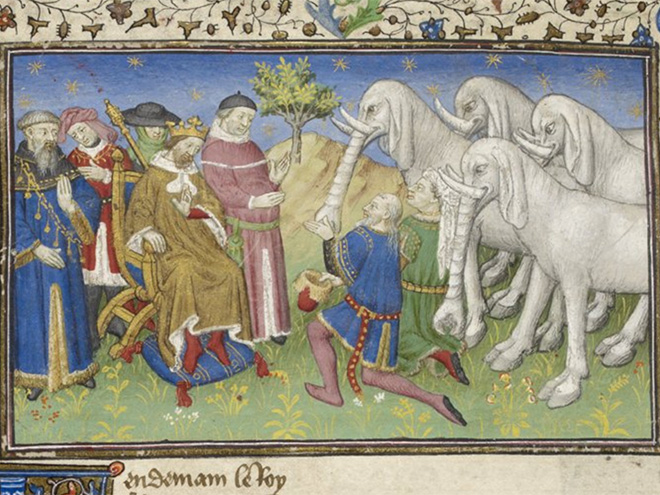 endemain le Roy